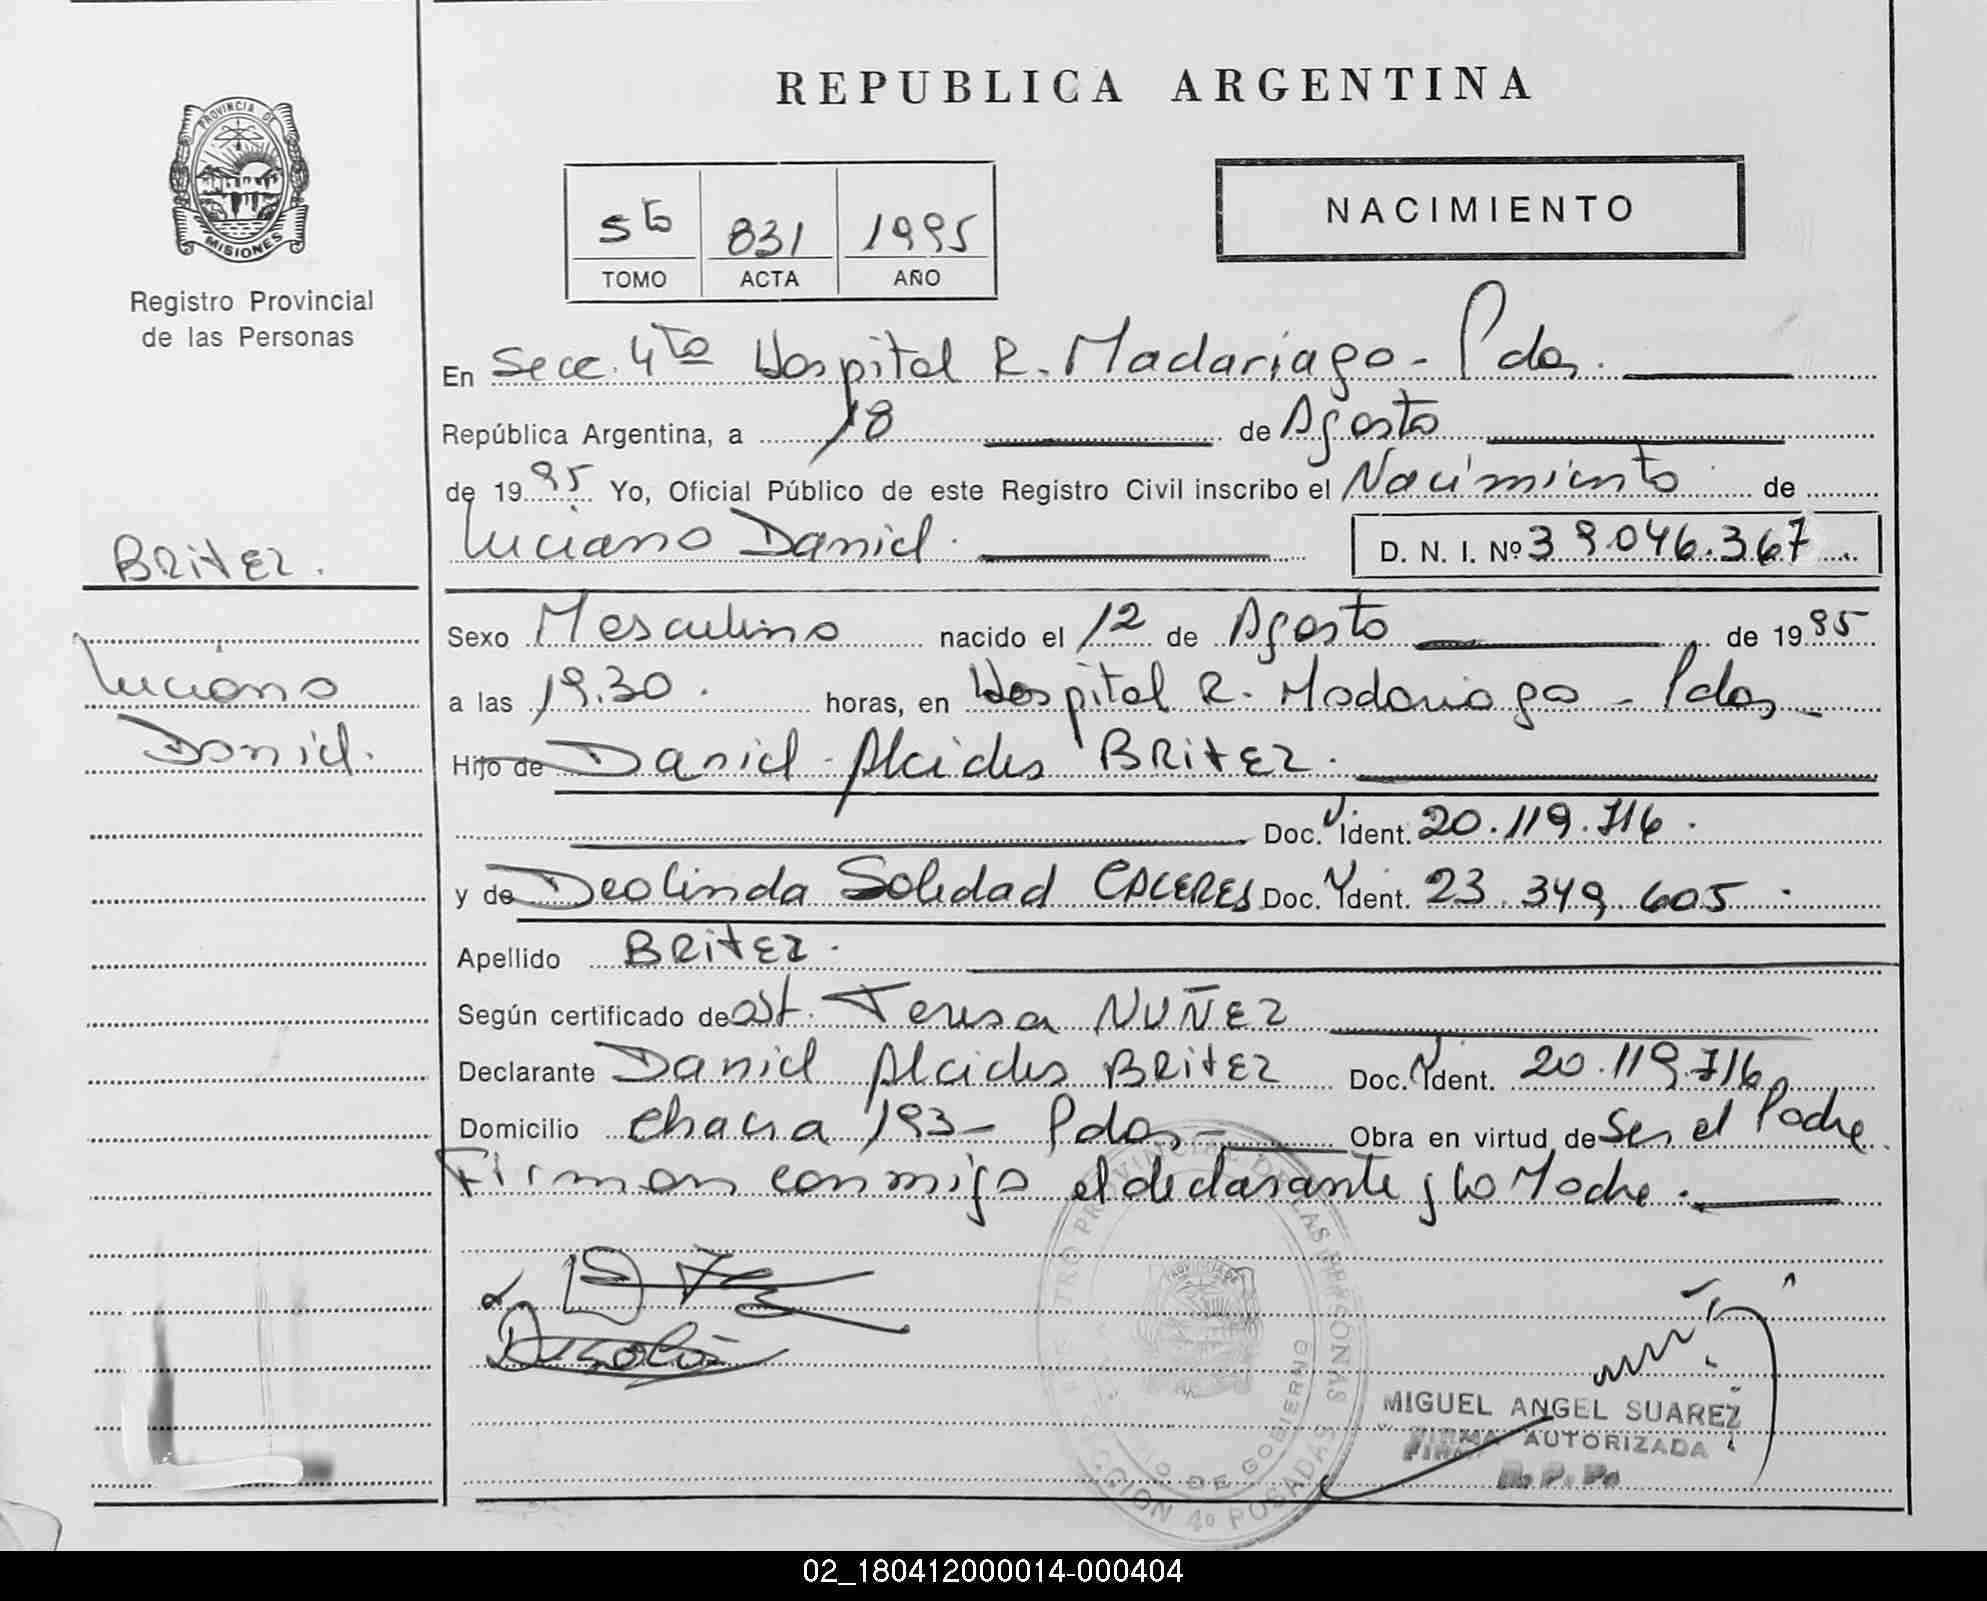 REPUBLICA ARGENTINA
PROVINCIA DE
MISIONES
Registro Provincial
de las Personas
5to 831 1995
TOMO ACTA AÑO
NACIMIENTO
En Secc. 4to Hospital R. Madariaga - Pdas.
República Argentina, a 18 de Agosto
de 1995 Yo, Oficial Público de este Registro Civil inscribo el Nacimiento de
Luciano Daniel. D. N. I. Nº 39.046.367
BRITEZ.
Luciano
Daniel.
Sexo Masculino nacido el 12 de Agosto de 1995
a las 19.30. horas, en Hospital R. Madariaga - Pdas -
Hijo de Daniel Alcides BRITEZ.
Doc. Ident. 20.119.716.
y de Deolinda Soledad CACERES Doc. Ident. 23.349.605.
Apellido BRITEZ.
Según certificado de obst. Teresa NUÑEZ
Declarante Daniel Alcides BRITEZ Doc. Ident. 20.119.716
Domicilio chacra 193 - Pdas - Obra en virtud de Ser el Padre.
Firman conmigo el declarante y la Madre.
MIGUEL ANGEL SUAREZ
FIRMA AUTORIZADA
R. P. P.
02_180412000014-000404